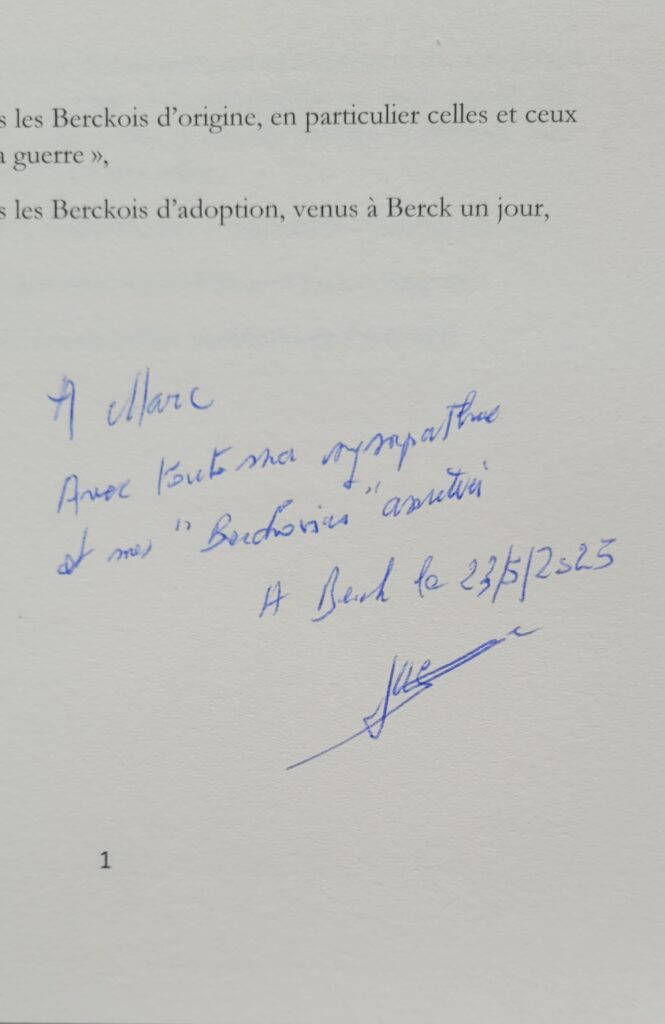 s les Berckois d'origine, en particulier celles et ceux
a guerre »,
s les Berckois d'adoption, venus à Berck un jour,
A Marc
Avec toute ma sympathie
et mes " "
A Berck le 23/5/2025
1